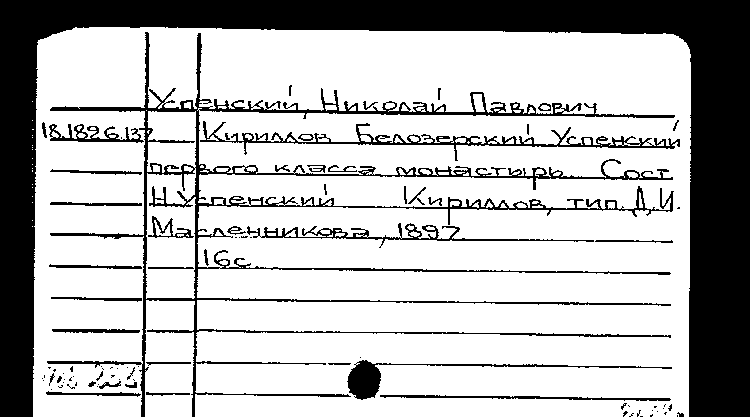 Успенский, Николай Павлович
18.1826.137 Кириллов Белозерский Успенский
первого класса монастырь. Сост.
Н.Успенский Кириллов, тип. Д.И.
Масленникова, 1897
16с